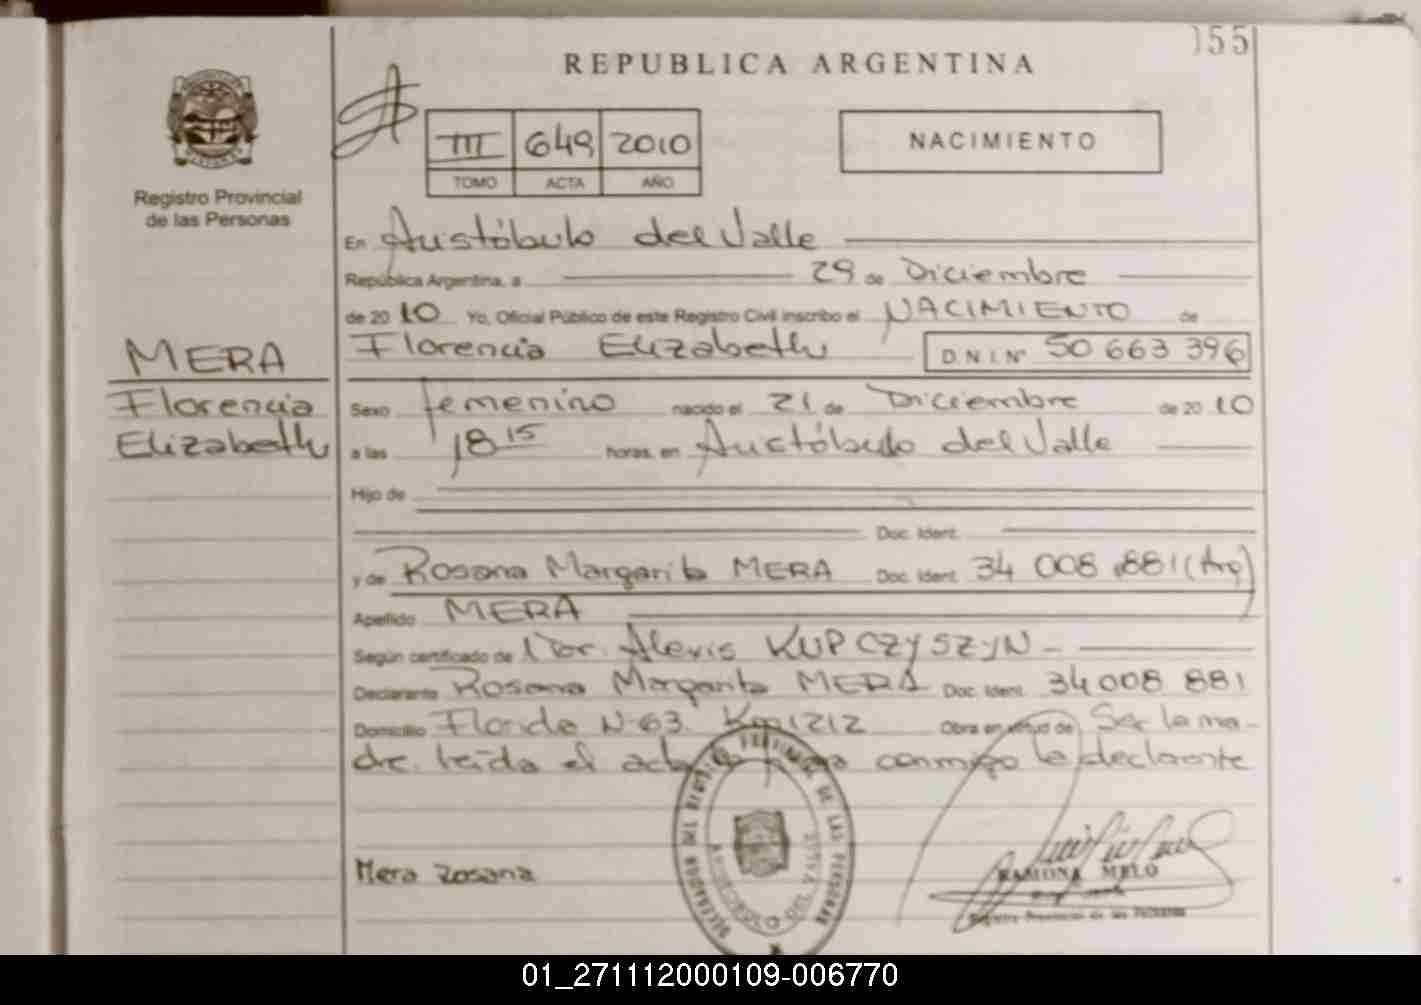 155
REPUBLICA ARGENTINA
III 649 2010
TOMO ACTA AÑO
NACIMIENTO
Registro Provincial
de las Personas
En Aristóbulo del Valle
República Argentina, a 29 de Diciembre
de 2010 Yo, Oficial Público de este Registro Civil inscribo el NACIMIENTO de
Florencia Elizabeth D.N.I.Nº 50 663 396
MERA
Florencia
Elizabeth
Sexo femenino nacido el 21 de Diciembre de 2010
a las 18 15 horas, en Aristóbulo del Valle
Hijo de
Doc. Ident.
y de Rosana Margarita MERA Doc. Ident. 34 008 881 (Arg)
Apellido MERA
Según certificado de Dr. Alexis KUPCZYSZYN -
Declarante Rosana Margarita MERA Doc. Ident. 34 008 881
Domicilio Florida N-63. Km 1212 Obra en virtud de Ser la ma-
dre. leída el acta firma conmigo la declarante
Mera Rosana
DELEGACION DEL REGISTRO PROVINCIAL DE LAS PERSONAS
ARISTOBULO DEL VALLE
RAMONA MELO
Registro Provincial de las Personas
01_271112000109-006770